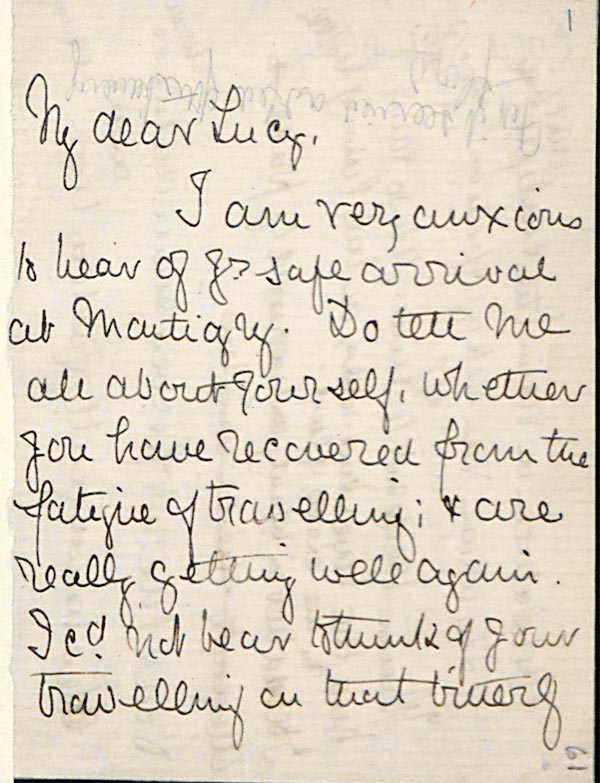 1
My dear Lucy,
I am very anxious
to hear of yr safe arrival
at Martigny. Do tell me
all about yourself, whether
you have recovered from the
fatigue of travelling; & are
really getting well again.
I cd not bear to think of your
travelling on that bitterly
19